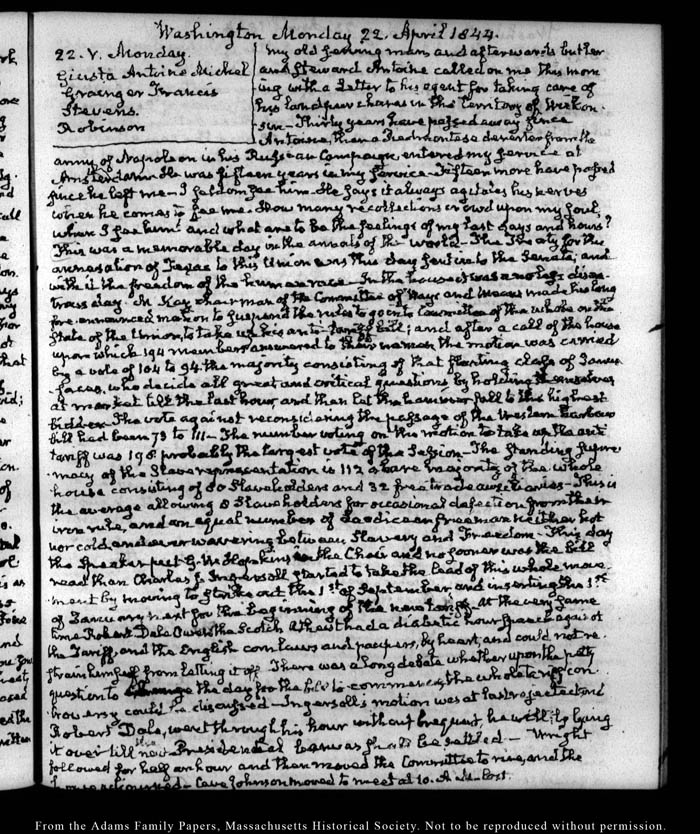 Washington Monday 22. April 1844.
22. V. Monday.
Giusta Antoine Michel
Granger Francis
Stevens.
Robinson
my old serving man, and afterwards butler
and Steward Antoine called on me this morn
ing with a Letter to his agent for taking care of
his land purchases in the Territory of Wiskon
sin — Thirty years have passed away since
Antoine, then a Piedmontese deserter from the
army of Napoleon in his Russian Campaign, entered my service at
Amsterdam. He was fifteen years in my service — Fifteen more have passed
since he left me — I seldom see him — He says it always agitates his nerves
when he comes to see me. How many recollections crowd upon my soul,
when I see him! and what are to be the feelings of my last days and hours?
This was a memorable day in the annals of the world — The Treaty for the
annexation of Texas to this Union was this day sent in to the Senate; and
with it the freedom of the human race — In the house it was a no less disas
trous day. Mr Kay chairman of the Committee of Ways and Means made his long
fore-announced motion to suspend the rules to go into Committee of the whole on the
State of the Union, to take up his anti-tariff bill; and after a call of the house
upon which 194 members answered to their names the motion was carried
by a vote of 104 to 94. the majority consisting of that floating class of Janus
faces, who decide all great and critical questions by holding themselves
at market till the last hour, and then let the hammer fall to the highest
bidder — The vote against reconsidering the passage of the Western harbour
bill had been 73 to 111 — The number voting on the motion to take up the anti
tariff was 198 probably the largest vote of the Session — The standing supre
macy of the Slave representation is 112 a bare majority of the whole
house consisting of 80 Slaveholders and 32 free trade auxiliaries — This is
the average allowing 8 Slaveholders for occasional defection from their
iron rule, and an equal number of Laodicean freemen neither hot
nor cold and ever wavering between Slavery and Freedom — This day
the Speaker put G. W. Hopkins in the Chair and no sooner was the bill
read than Charles J. Ingersoll started to take the lead of this whole move
ment by moving to strike out the 1st of September, and inserting the 1st
of January next for the beginning of the new tariff. At the very same
time Robert Dale Owen the Scotch Atheist had a diabetic hour speech against
the Tariff and the English corn laws and paupers, by heart, and could not re
strain himself from letting it off. There was a long debate whether upon the petty
question to change the day for the bill to commence, the whole tariff con
troversy could be discussed — Ingersoll's motion was at last rejected and
Robert Dale, went through his hour without
it over till the new Presidential shall be settled — Wright
followed for half an hour and then moved the Committee to rise, and the
house adjourned — Cave Johnson moved to meet at 10. A.M. — lost.
From the Adams Family Papers, Massachusetts Historical Society. Not to be reproduced without permission.